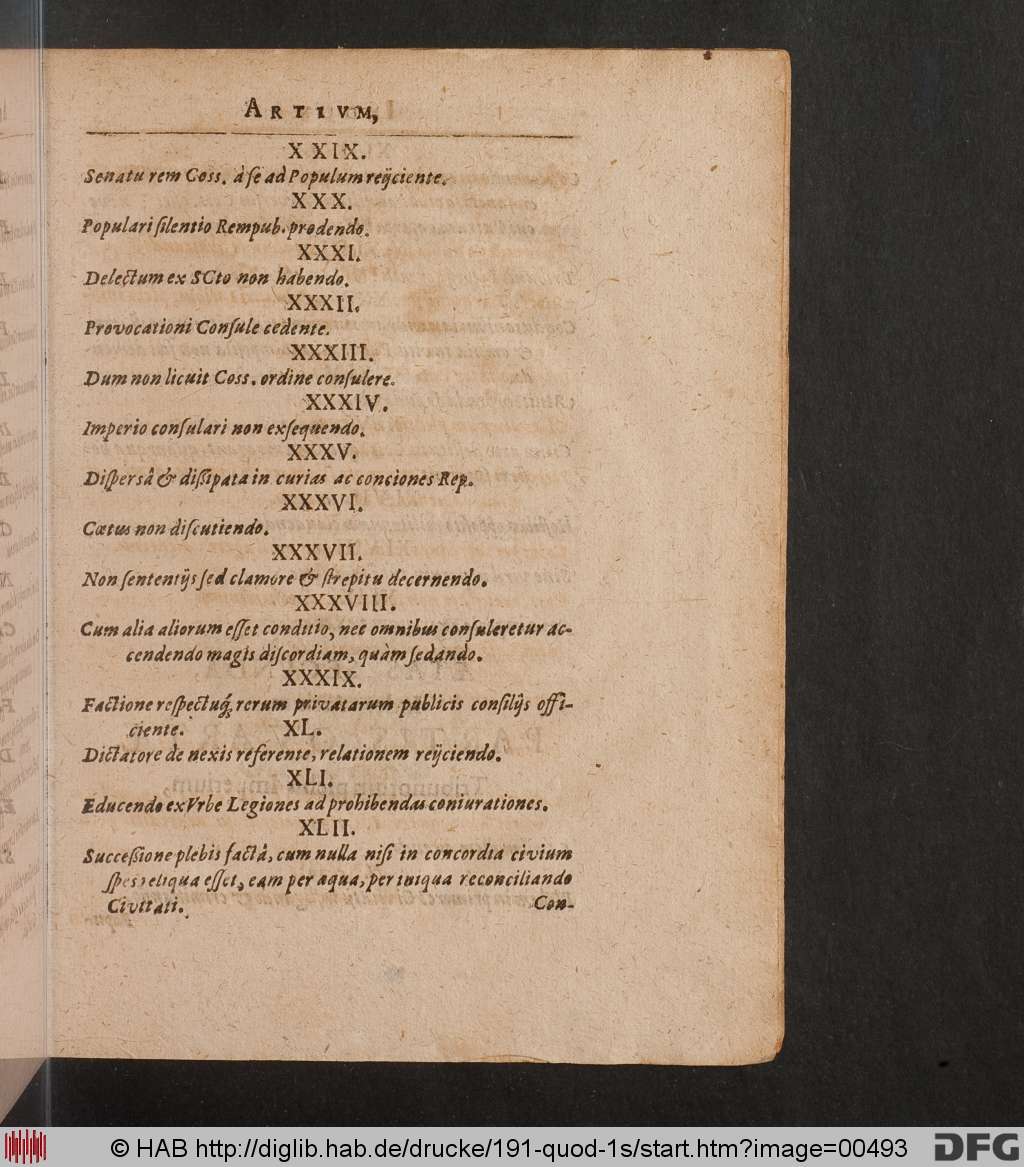 ARTIVM,
XXIX.
Senatu rem Coss. à ſe ad Populum reijciente.
XXX.
Populari ſilentio Rempub. prodendo.
XXXI.
Delectum ex SCto non habendo.
XXXII.
Provocationi Conſule cedente.
XXXIII.
Dum non licuit Coss. ordine conſulere.
XXXIV.
Imperio conſulari non exſequendo.
XXXV.
Diſperſâ & diſſipata in curias ac conciones Rep.
XXXVI.
Cœtus non diſcutiendo.
XXXVII.
Non ſententijs ſed clamore & ſtrepitu decernendo.
XXXVIII.
Cum alia aliorum eſſet conditio, nec omnibus conſuleretur ac-
cendendo magis diſcordiam, quàm ſedando.
XXXIX.
Factione reſpectuq́; rerum privatarum publicis conſilijs offi-
ciente.
XL.
Dictatore de nexis referente, relationem reijciendo.
XLI.
Educendo ex Vrbe Legiones ad prohibendas coniurationes.
XLII.
Succeſſione plebis factâ, cum nulla niſi in concordia civium
ſpes reliqua eſſet, eam per aqua, per iniqua reconciliando
Civitati.
Con-
© HAB http://diglib.hab.de/drucke/191-quod-1s/start.htm?image=00493
DFG